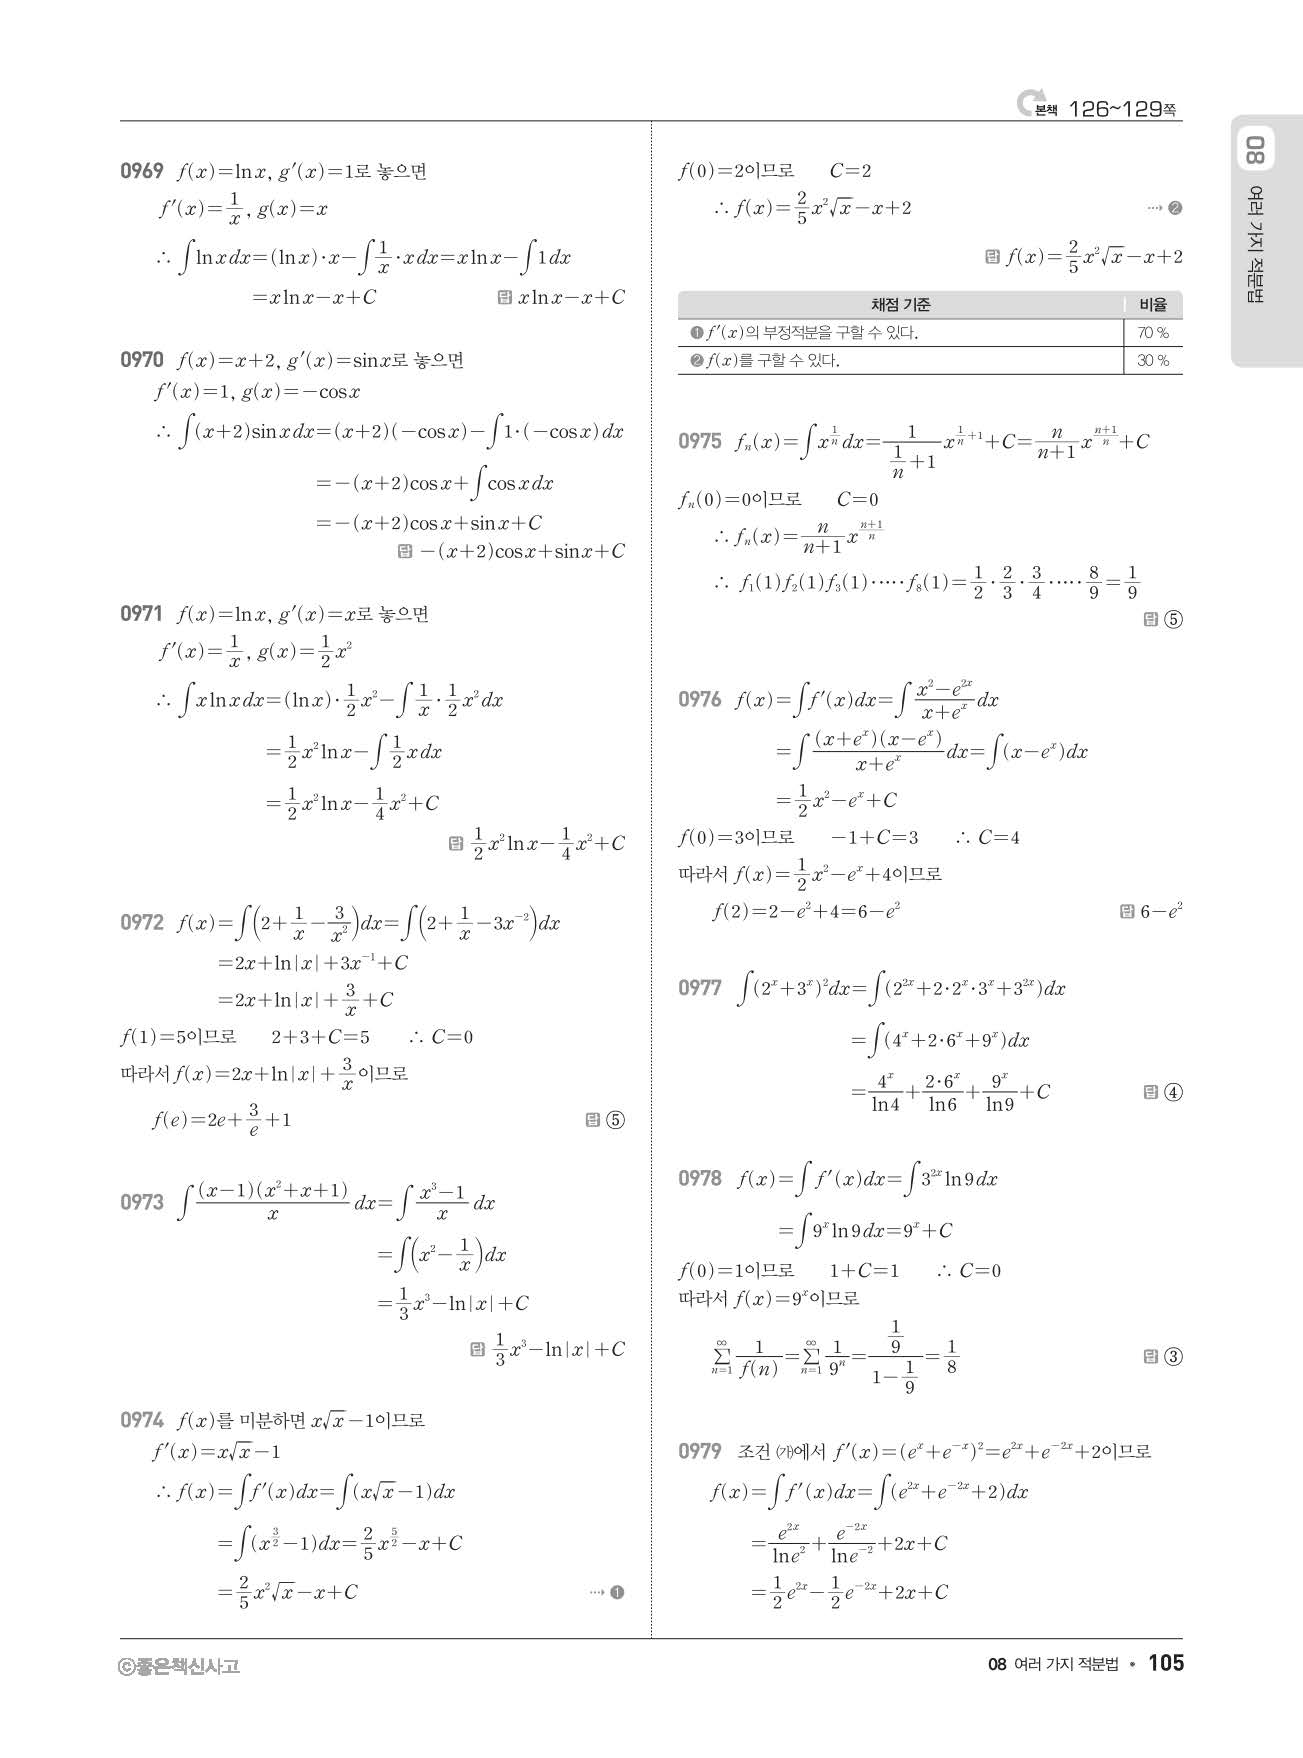 본책 126~129쪽
08 여러 가지 적분법
0969 f(x)=ln x, g′(x)=1로 놓으면
f′(x)=1/x, g(x)=x
∴ ∫ln x dx=(ln x)·x−∫1/x·x dx=x ln x−∫1dx
=x ln x−x+C 답 x ln x−x+C
0970 f(x)=x+2, g′(x)=sin x로 놓으면
f′(x)=1, g(x)=−cos x
∴ ∫(x+2)sin x dx=(x+2)(−cos x)−∫1·(−cos x)dx
=−(x+2)cos x+∫cos x dx
=−(x+2)cos x+sin x+C
답 −(x+2)cos x+sin x+C
0971 f(x)=ln x, g′(x)=x로 놓으면
f′(x)=1/x, g(x)=1/2 x²
∴ ∫x ln x dx=(ln x)·1/2 x²−∫1/x·1/2 x² dx
=1/2 x² ln x−∫1/2 x dx
=1/2 x² ln x−1/4 x²+C
답 1/2 x² ln x−1/4 x²+C
0972 f(x)=∫(2+1/x−3/x²)dx=∫(2+1/x−3x⁻²)dx
=2x+ln|x|+3x⁻¹+C
=2x+ln|x|+3/x+C
f(1)=5이므로 2+3+C=5 ∴ C=0
따라서 f(x)=2x+ln|x|+3/x이므로
f(e)=2e+3/e+1 답 ⑤
0973 ∫(x−1)(x²+x+1)/x dx=∫(x³−1)/x dx
=∫(x²−1/x)dx
=1/3 x³−ln|x|+C
답 1/3 x³−ln|x|+C
0974 f(x)를 미분하면 x√x−1이므로
f′(x)=x√x−1
∴ f(x)=∫f′(x)dx=∫(x√x−1)dx
=∫(x^(3/2)−1)dx=2/5 x^(5/2)−x+C
=2/5 x²√x−x+C ⋯→ ❶
f(0)=2이므로 C=2
∴ f(x)=2/5 x²√x−x+2 ⋯→ ❷
답 f(x)=2/5 x²√x−x+2
채점 기준 비율
❶ f′(x)의 부정적분을 구할 수 있다. 70 %
❷ f(x)를 구할 수 있다. 30 %
0975 fₙ(x)=∫x^(1/n) dx=1/(1/n+1) x^(1/n+1)+C=n/(n+1) x^((n+1)/n)+C
fₙ(0)=0이므로 C=0
∴ fₙ(x)=n/(n+1) x^((n+1)/n)
∴ f₁(1)f₂(1)f₃(1)·⋯·f₈(1)=1/2·2/3·3/4·⋯·8/9=1/9
답 ⑤
0976 f(x)=∫f′(x)dx=∫(x²−e^(2x))/(x+e^x) dx
=∫(x+e^x)(x−e^x)/(x+e^x) dx=∫(x−e^x)dx
=1/2 x²−e^x+C
f(0)=3이므로 −1+C=3 ∴ C=4
따라서 f(x)=1/2 x²−e^x+4이므로
f(2)=2−e²+4=6−e² 답 6−e²
0977 ∫(2^x+3^x)²dx=∫(2^(2x)+2·2^x·3^x+3^(2x))dx
=∫(4^x+2·6^x+9^x)dx
=4^x/ln 4+2·6^x/ln 6+9^x/ln 9+C 답 ④
0978 f(x)=∫f′(x)dx=∫3^(2x) ln 9 dx
=∫9^x ln 9 dx=9^x+C
f(0)=1이므로 1+C=1 ∴ C=0
따라서 f(x)=9^x이므로
∑_(n=1)^∞ 1/f(n)=∑_(n=1)^∞ 1/9ⁿ=(1/9)/(1−1/9)=1/8 답 ③
0979 조건 ㈎에서 f′(x)=(e^x+e^(−x))²=e^(2x)+e^(−2x)+2이므로
f(x)=∫f′(x)dx=∫(e^(2x)+e^(−2x)+2)dx
=e^(2x)/ln e²+e^(−2x)/ln e⁻²+2x+C
=1/2 e^(2x)−1/2 e^(−2x)+2x+C
ⓒ좋은책신사고
08 여러 가지 적분법 • 105